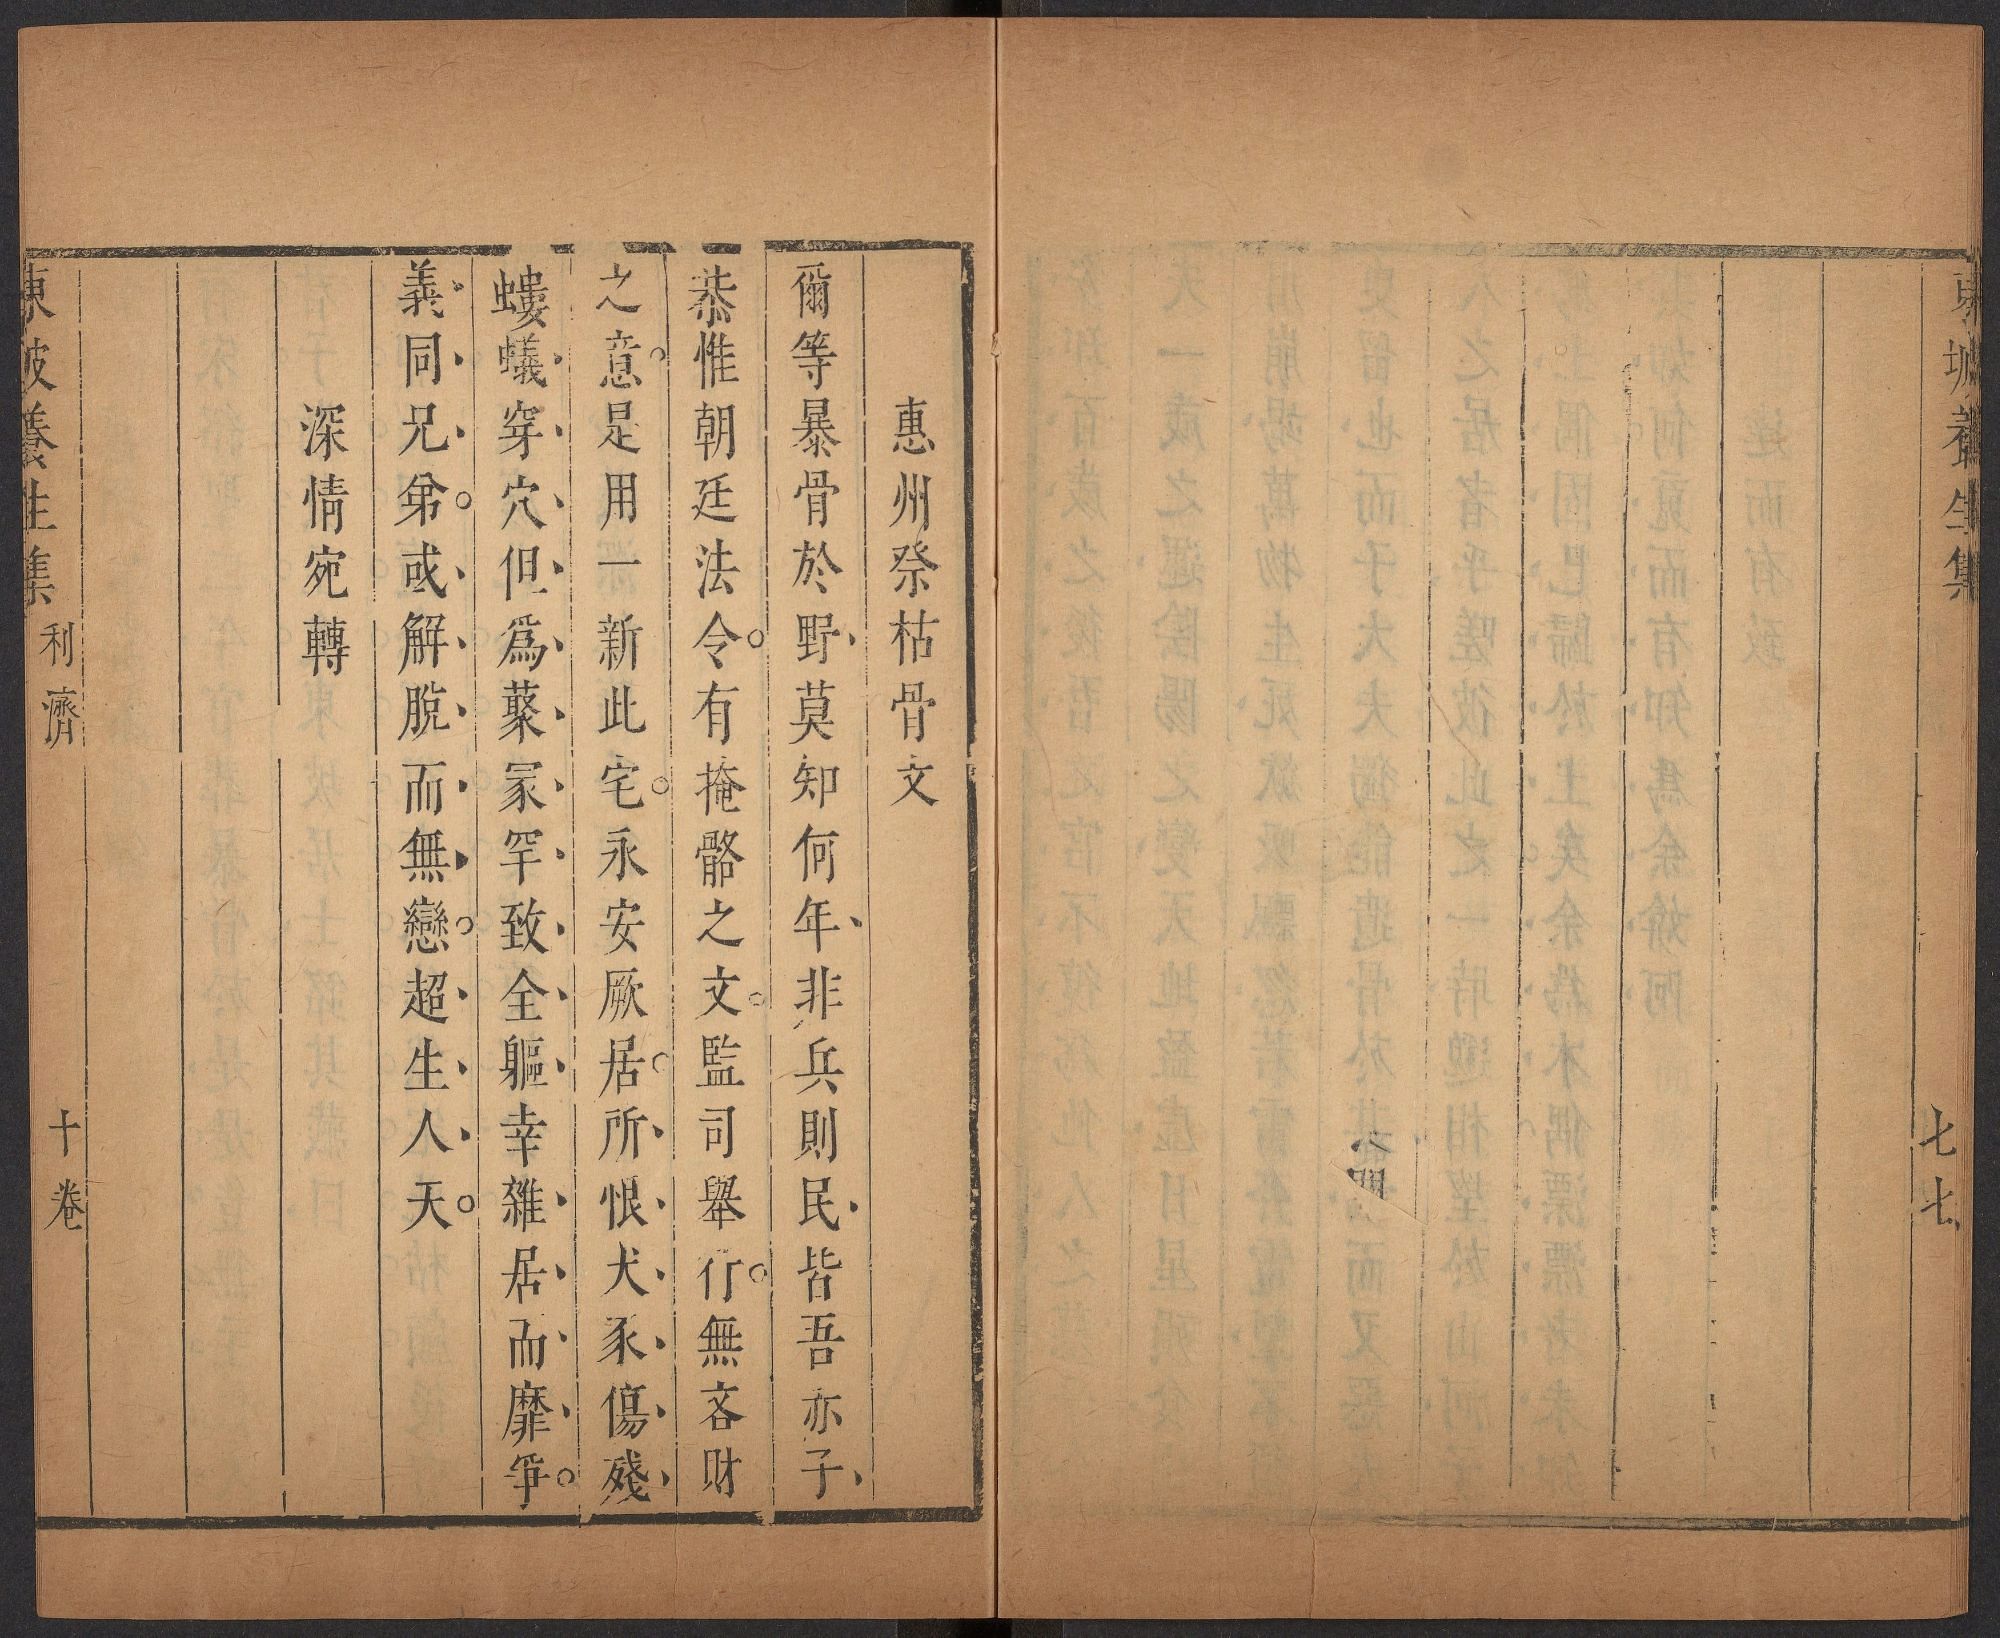 東坡養生集
七七
惠州祭枯骨文
爾等暴骨於野莫知何年非兵則民皆吾亦子
恭惟朝廷法令有掩骼之文監司舉行無吝財
之意是用一新此宅永安厥居所恨犬豕傷殘
螻蟻穿穴但爲藂冢罕致全軀幸雜居而靡爭
義同兄弟或解脫而無戀超生人天
深情宛轉
東坡養生集 利濟 十卷